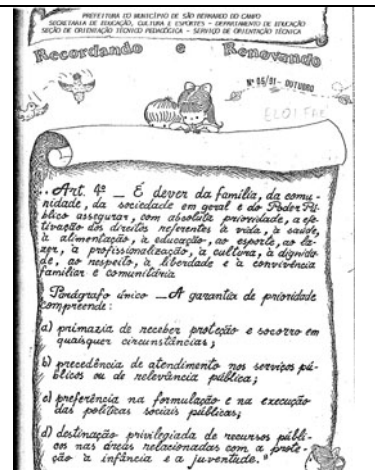 PREFEITURA DO MUNICÍPIO DE SÃO BERNARDO DO CAMPO
SECRETARIA DE EDUCAÇÃO, CULTURA E ESPORTES - DEPARTAMENTO DE EDUCAÇÃO
SEÇÃO DE ORIENTAÇÃO TÉCNICO PEDAGÓGICA - SERVIÇO DE ORIENTAÇÃO TÉCNICA
Recordando e Renovando
Nº 06/91 - OUTUBRO
... Art. 4º _ É dever da família, da comu-
nidade, da sociedade em geral e do Poder Pú-
blico assegurar, com absoluta prioridade, a efe-
tivação dos direitos referentes à vida, à saúde,
à alimentação, à educação, ao esporte, ao la-
zer, à profissionalização, à cultura, à dignida-
de, ao respeito, à liberdade e à convivência
familiar e comunitária.
Parágrafo único _ A garantia de prioridade
compreende:
a) primazia de receber proteção e socorro em
quaisquer circunstâncias;
b) precedência de atendimento nos serviços pú-
blicos ou de relevância pública;
c) preferência na formulação e na execução
das políticas sociais públicas;
d) destinação privilegiada de recursos públi-
cos nas áreas relacionadas com a prote-
ção à infância e a juventude."